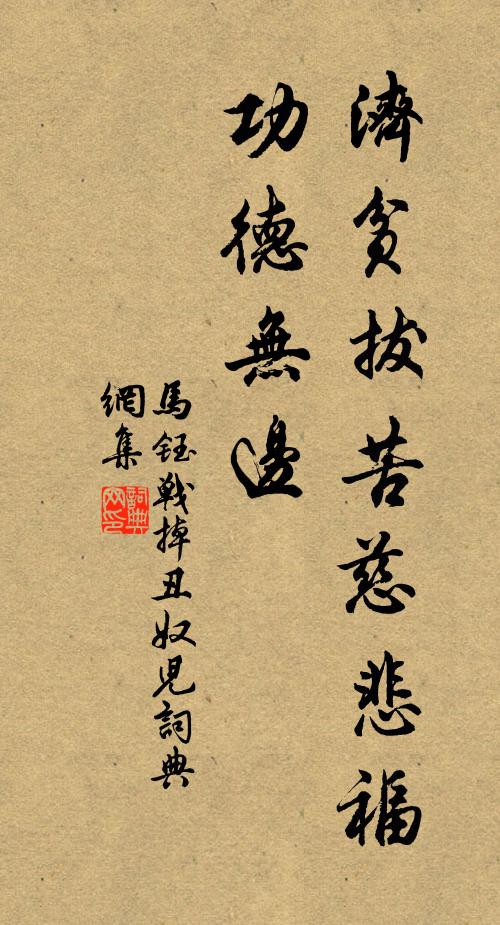 濟貧拔苦慈悲福
功德無邊
馬鈺戰掉丑奴兒詞典
網集
詞典網印